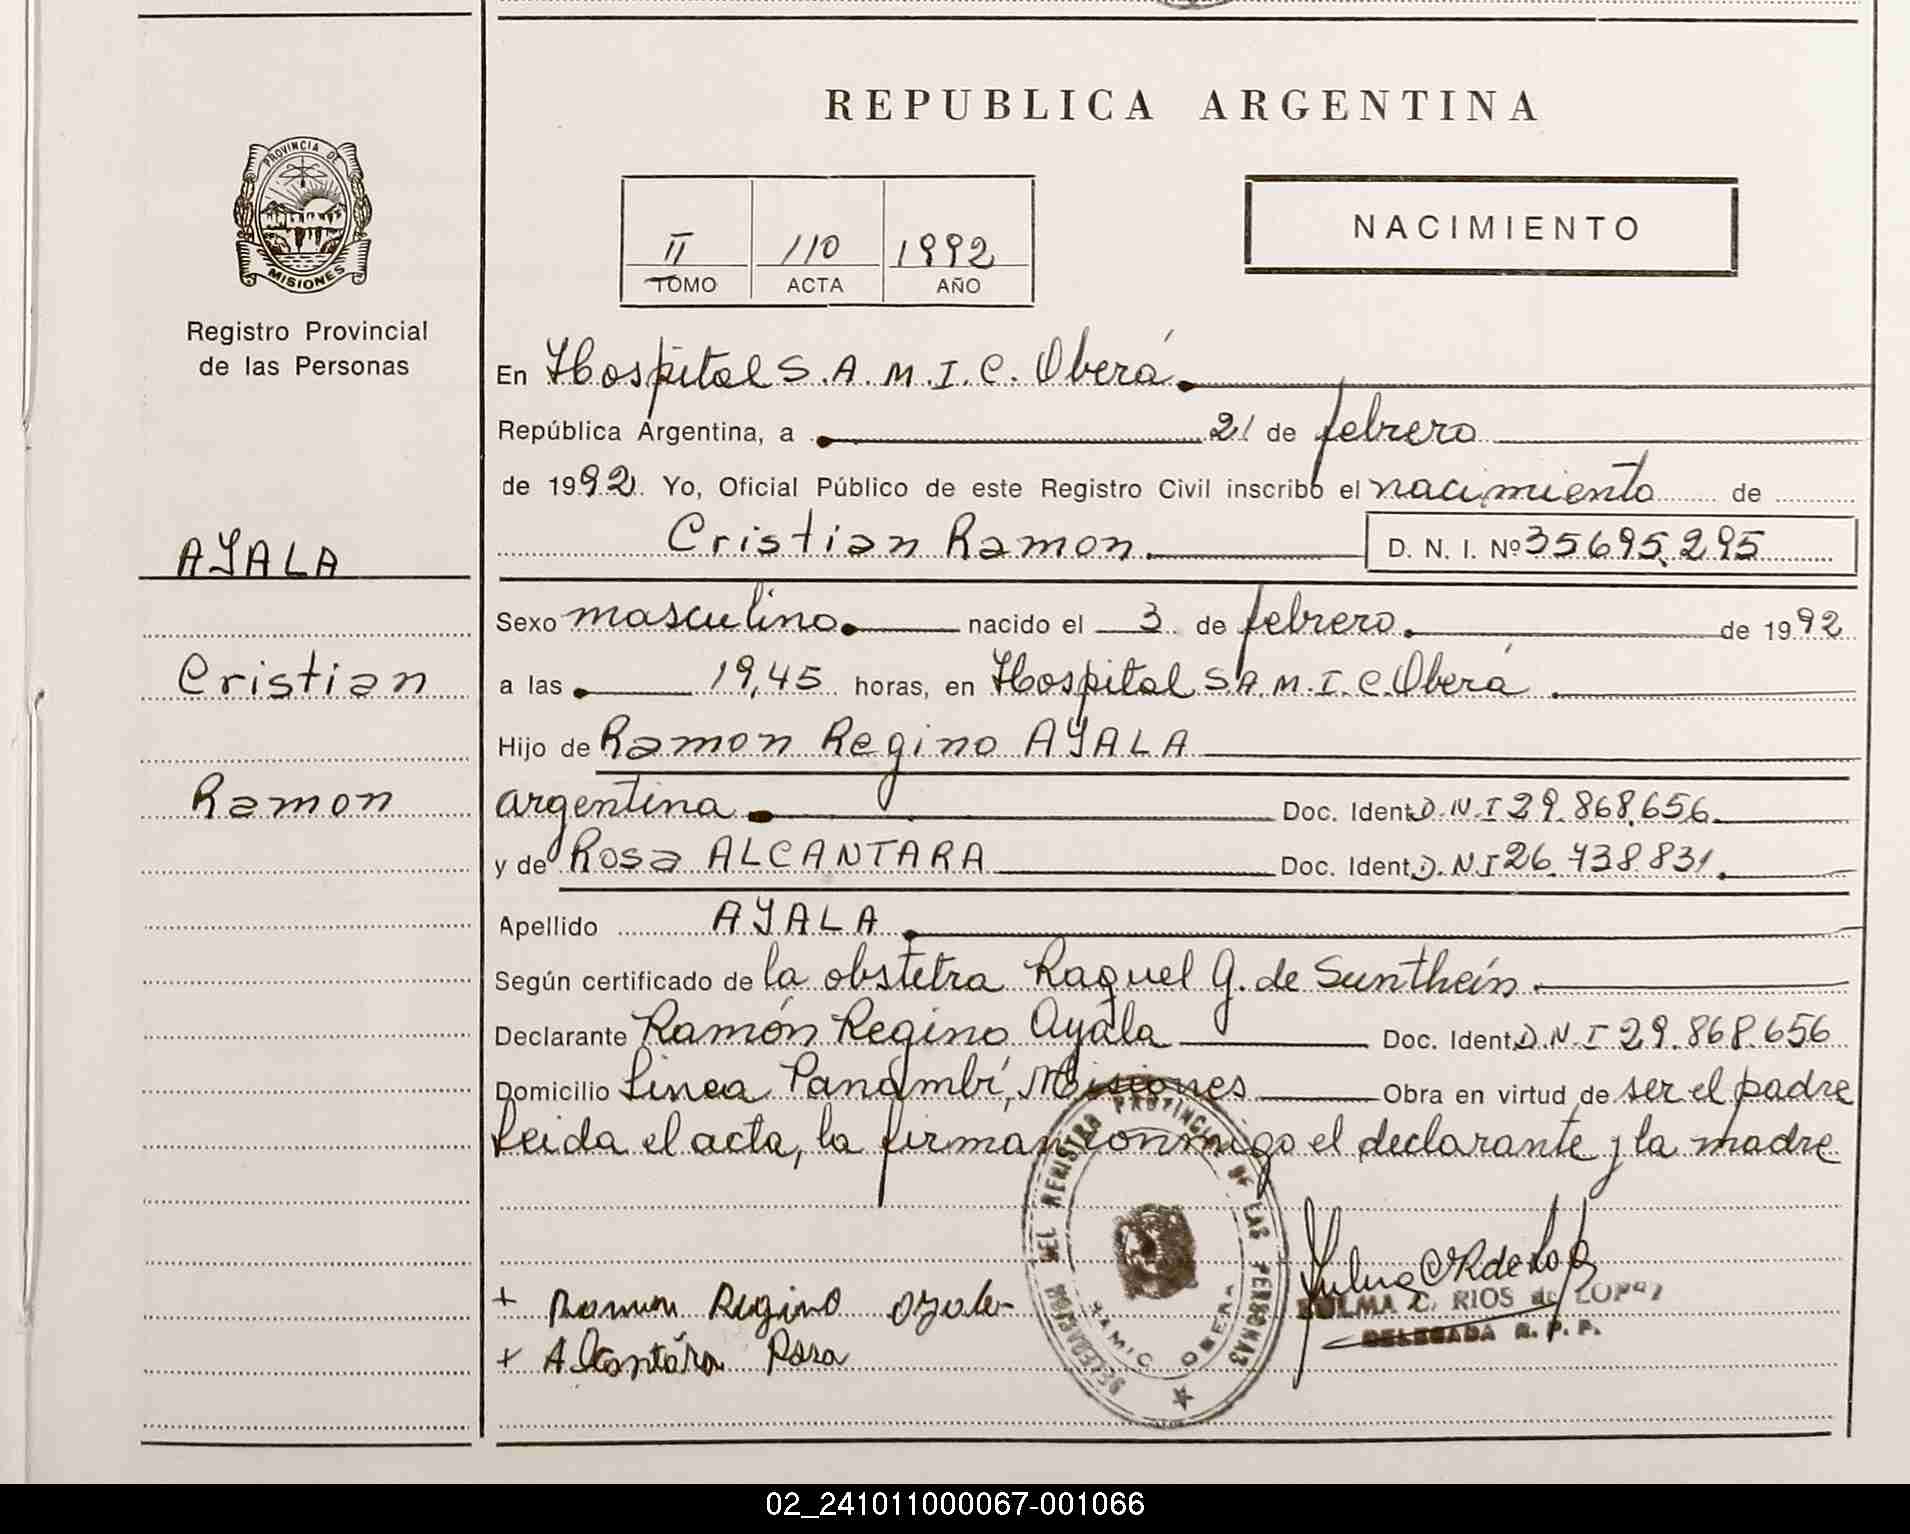 REPUBLICA ARGENTINA
PROVINCIA DE
MISIONES
Registro Provincial
de las Personas
II 110 1992
TOMO ACTA AÑO
NACIMIENTO
En Hospital S.A.M.I.C. Oberá
República Argentina, a 21 de febrero
de 1992. Yo, Oficial Público de este Registro Civil inscribo el nacimiento de
Cristian Ramon D. N. I. Nº 35695.295
AYALA
Cristian
Ramon
Sexo masculino nacido el 3 de febrero de 1992
a las 19,45 horas, en Hospital S.A.M.I.C. Oberá
Hijo de Ramon Regino AYALA
argentina Doc. Ident. D.N.I 29.868.656
y de Rosa ALCANTARA Doc. Ident. D.N.I 26.738.831
Apellido AYALA
Según certificado de la obstetra Raquel G. de Sunthein
Declarante Ramón Regino Ayala Doc. Ident. D.N.I 29.868.656
Domicilio Linea Panambí, Misiones Obra en virtud de ser el padre
Leida el acta, la firman conmigo el declarante y la madre
DELEGACION DEL REGISTRO PROVINCIAL DE LAS PERSONAS
SAMIC OBERA
+ Ramon Regino Ayala
+ Alcantára Rosa
ZULMA C. RIOS de LOPEZ
DELEGADA R. P. P.
02_241011000067-001066